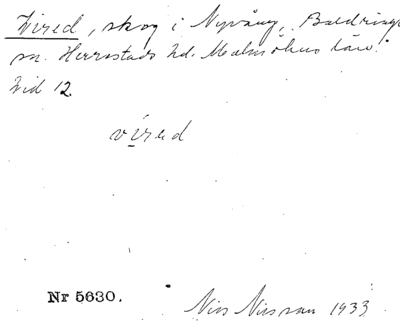 Vired, skog i Nyvång, Baldringe
sn. Herrestads hd. Malmöhus län.
Vid 12.
vired
Nr 5630.
Nils Nilsson 1933